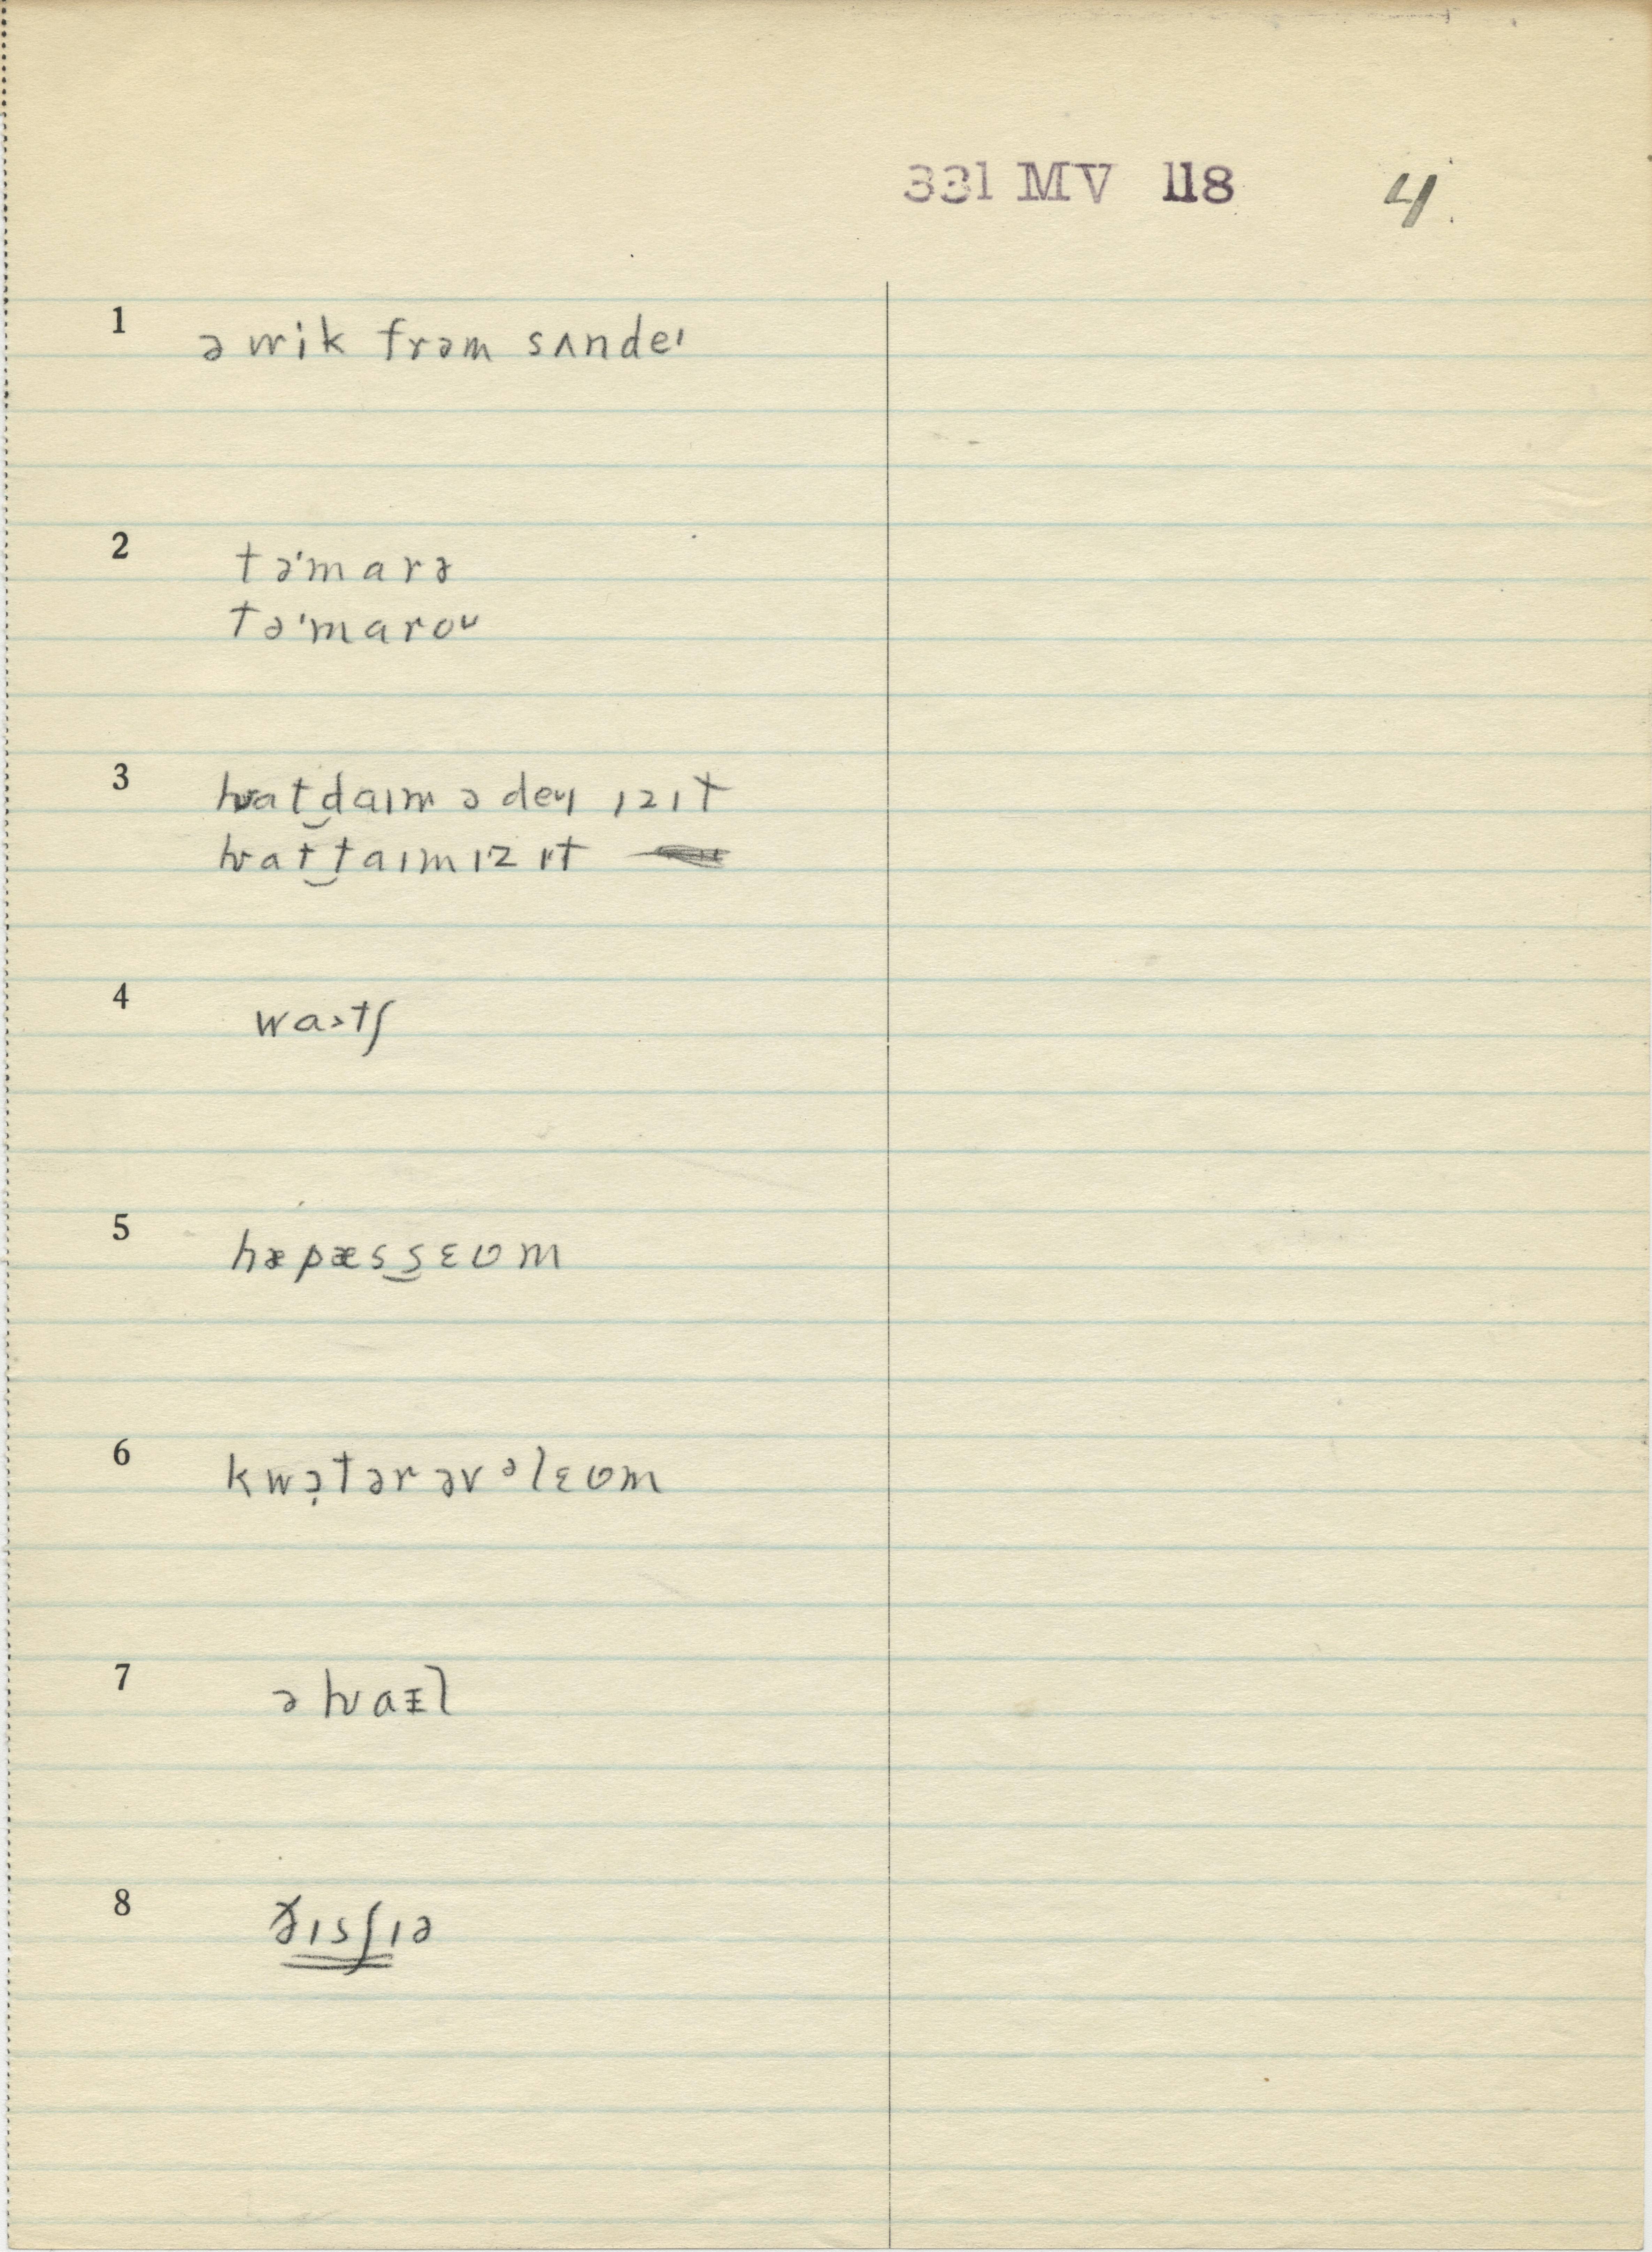 331 MV 118 4
1 ə wik frəm sʌndeɪ
2 tə'marə
tə'maroʊ
3 hwat‿daɪm ə deɪ ɪzɪt
hwat‿taɪmɪzɪt
4 waɔtʃ
5 hæpæs‿sɛʊm
6 kwə̣tərəvᵊlɛʊm
7 ə hwaɪl
8 ðɪsjɪə